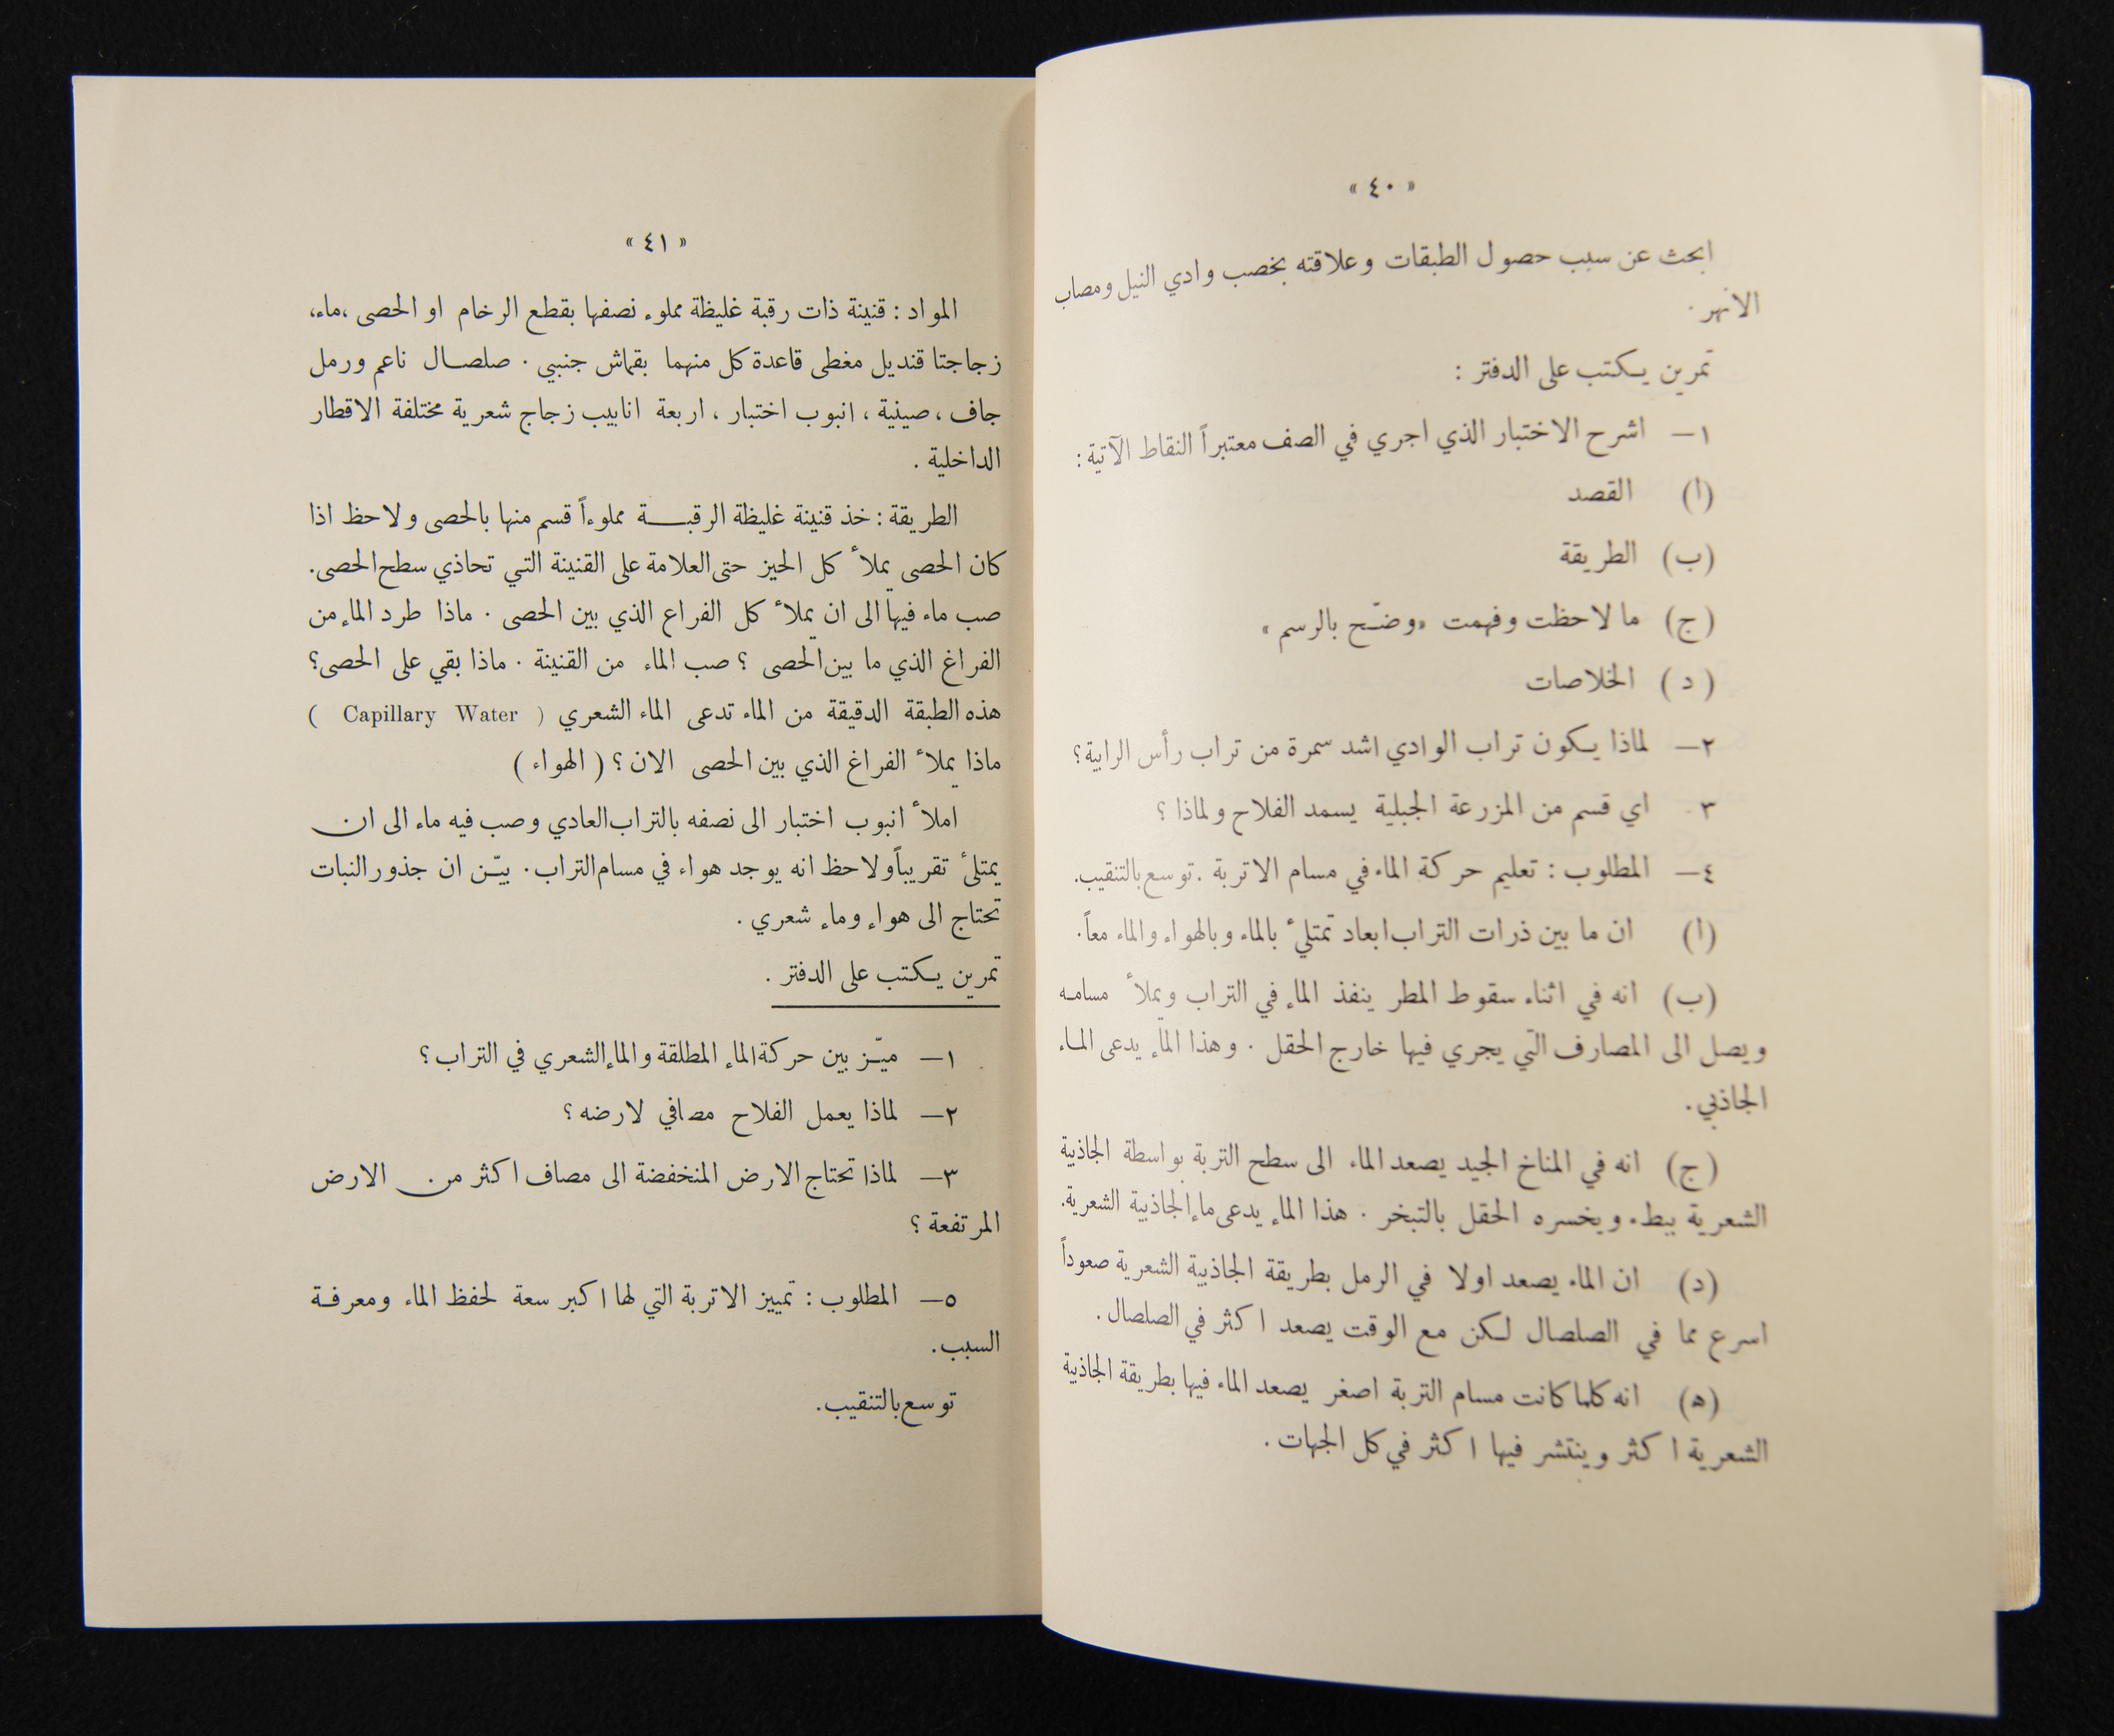 « ٤٠ »
ابحث عن سبب حصول الطبقات وعلاقته بخصب وادي النيل ومصاب
الانهر.
تمرين يكتب على الدفتر :
١— اشرح الاختبار الذي اجري في الصف معتبراً النقاط الآتية :
(ا) القصد
(ب) الطريقة
(ج) ما لاحظت وفهمت «وضّح بالرسم»
(د) الخلاصات
٢— لماذا يكون تراب الوادي اشد سمرة من تراب رأس الرابية؟
٣- اي قسم من المزرعة الجبلية يسمد الفلاح ولماذا ؟
٤— المطلوب : تعليم حركة الماء في مسام الاتربة . توسع بالتنقيب.
(ا) ان ما بين ذرات التراب ابعاد تمتلئ بالماء وبالهواء والماء معاً.
(ب) انه في اثناء سقوط المطر ينفذ الماء في التراب ويملأ مسامه
ويصل الى المصارف التي يجري فيها خارج الحقل . وهذا الماء يدعى الماء
الجاذبي.
(ج) انه في المناخ الجيد يصعد الماء الى سطح التربة بواسطة الجاذبية
الشعرية ببطء ويخسره الحقل بالتبخر . هذا الماء يدعى ماء الجاذبية الشعرية.
(د) ان الماء يصعد اولا في الرمل بطريقة الجاذبية الشعرية صعوداً
اسرع مما في الصلصال لكن مع الوقت يصعد اكثر في الصلصال .
(ه) انه كلما كانت مسام التربة اصغر يصعد الماء فيها بطريقة الجاذبية
الشعرية اكثر وينتشر فيها اكثر في كل الجهات .
« ٤١ »
المواد : قنينة ذات رقبة غليظة مملوء نصفها بقطع الرخام او الحصى ،ماء،
زجاجتا قنديل مغطى قاعدة كل منهما بقماش جنبي . صلصال ناعم ورمل
جاف ، صينية ، انبوب اختبار ، اربعة انابيب زجاج شعرية مختلفة الاقطار
الداخلية .
الطريقة : خذ قنينة غليظة الرقبة مملوءاً قسم منها بالحصى ولاحظ اذا
كان الحصى يملأ كل الحيز حتى العلامة على القنينة التي تحاذي سطح الحصى.
صب ماء فيها الى ان يملأ كل الفراع الذي بين الحصى . ماذا طرد الماء من
الفراغ الذي ما بين الحصى ؟ صب الماء من القنينة . ماذا بقي على الحصى؟
هذه الطبقة الدقيقة من الماء تدعى الماء الشعري ( Capillary Water )
ماذا يملأ الفراغ الذي بين الحصى الان ؟ ( الهواء )
املأ انبوب اختبار الى نصفه بالتراب العادي وصب فيه ماء الى ان
يمتلئ تقريباً ولاحظ انه يوجد هواء في مسام التراب . بيّن ان جذور النبات
تحتاج الى هواء وماء شعري .
تمرين يكتب على الدفتر .
١— ميّز بين حركة الماء المطلقة والماء الشعري في التراب ؟
٢— لماذا يعمل الفلاح مصافي لارضه ؟
٣— لماذا تحتاج الارض المنخفضة الى مصاف اكثر من الارض
المرتفعة ؟
٥— المطلوب : تمييز الاتربة التي لها اكبر سعة لحفظ الماء ومعرفة
السبب.
توسع بالتنقيب.